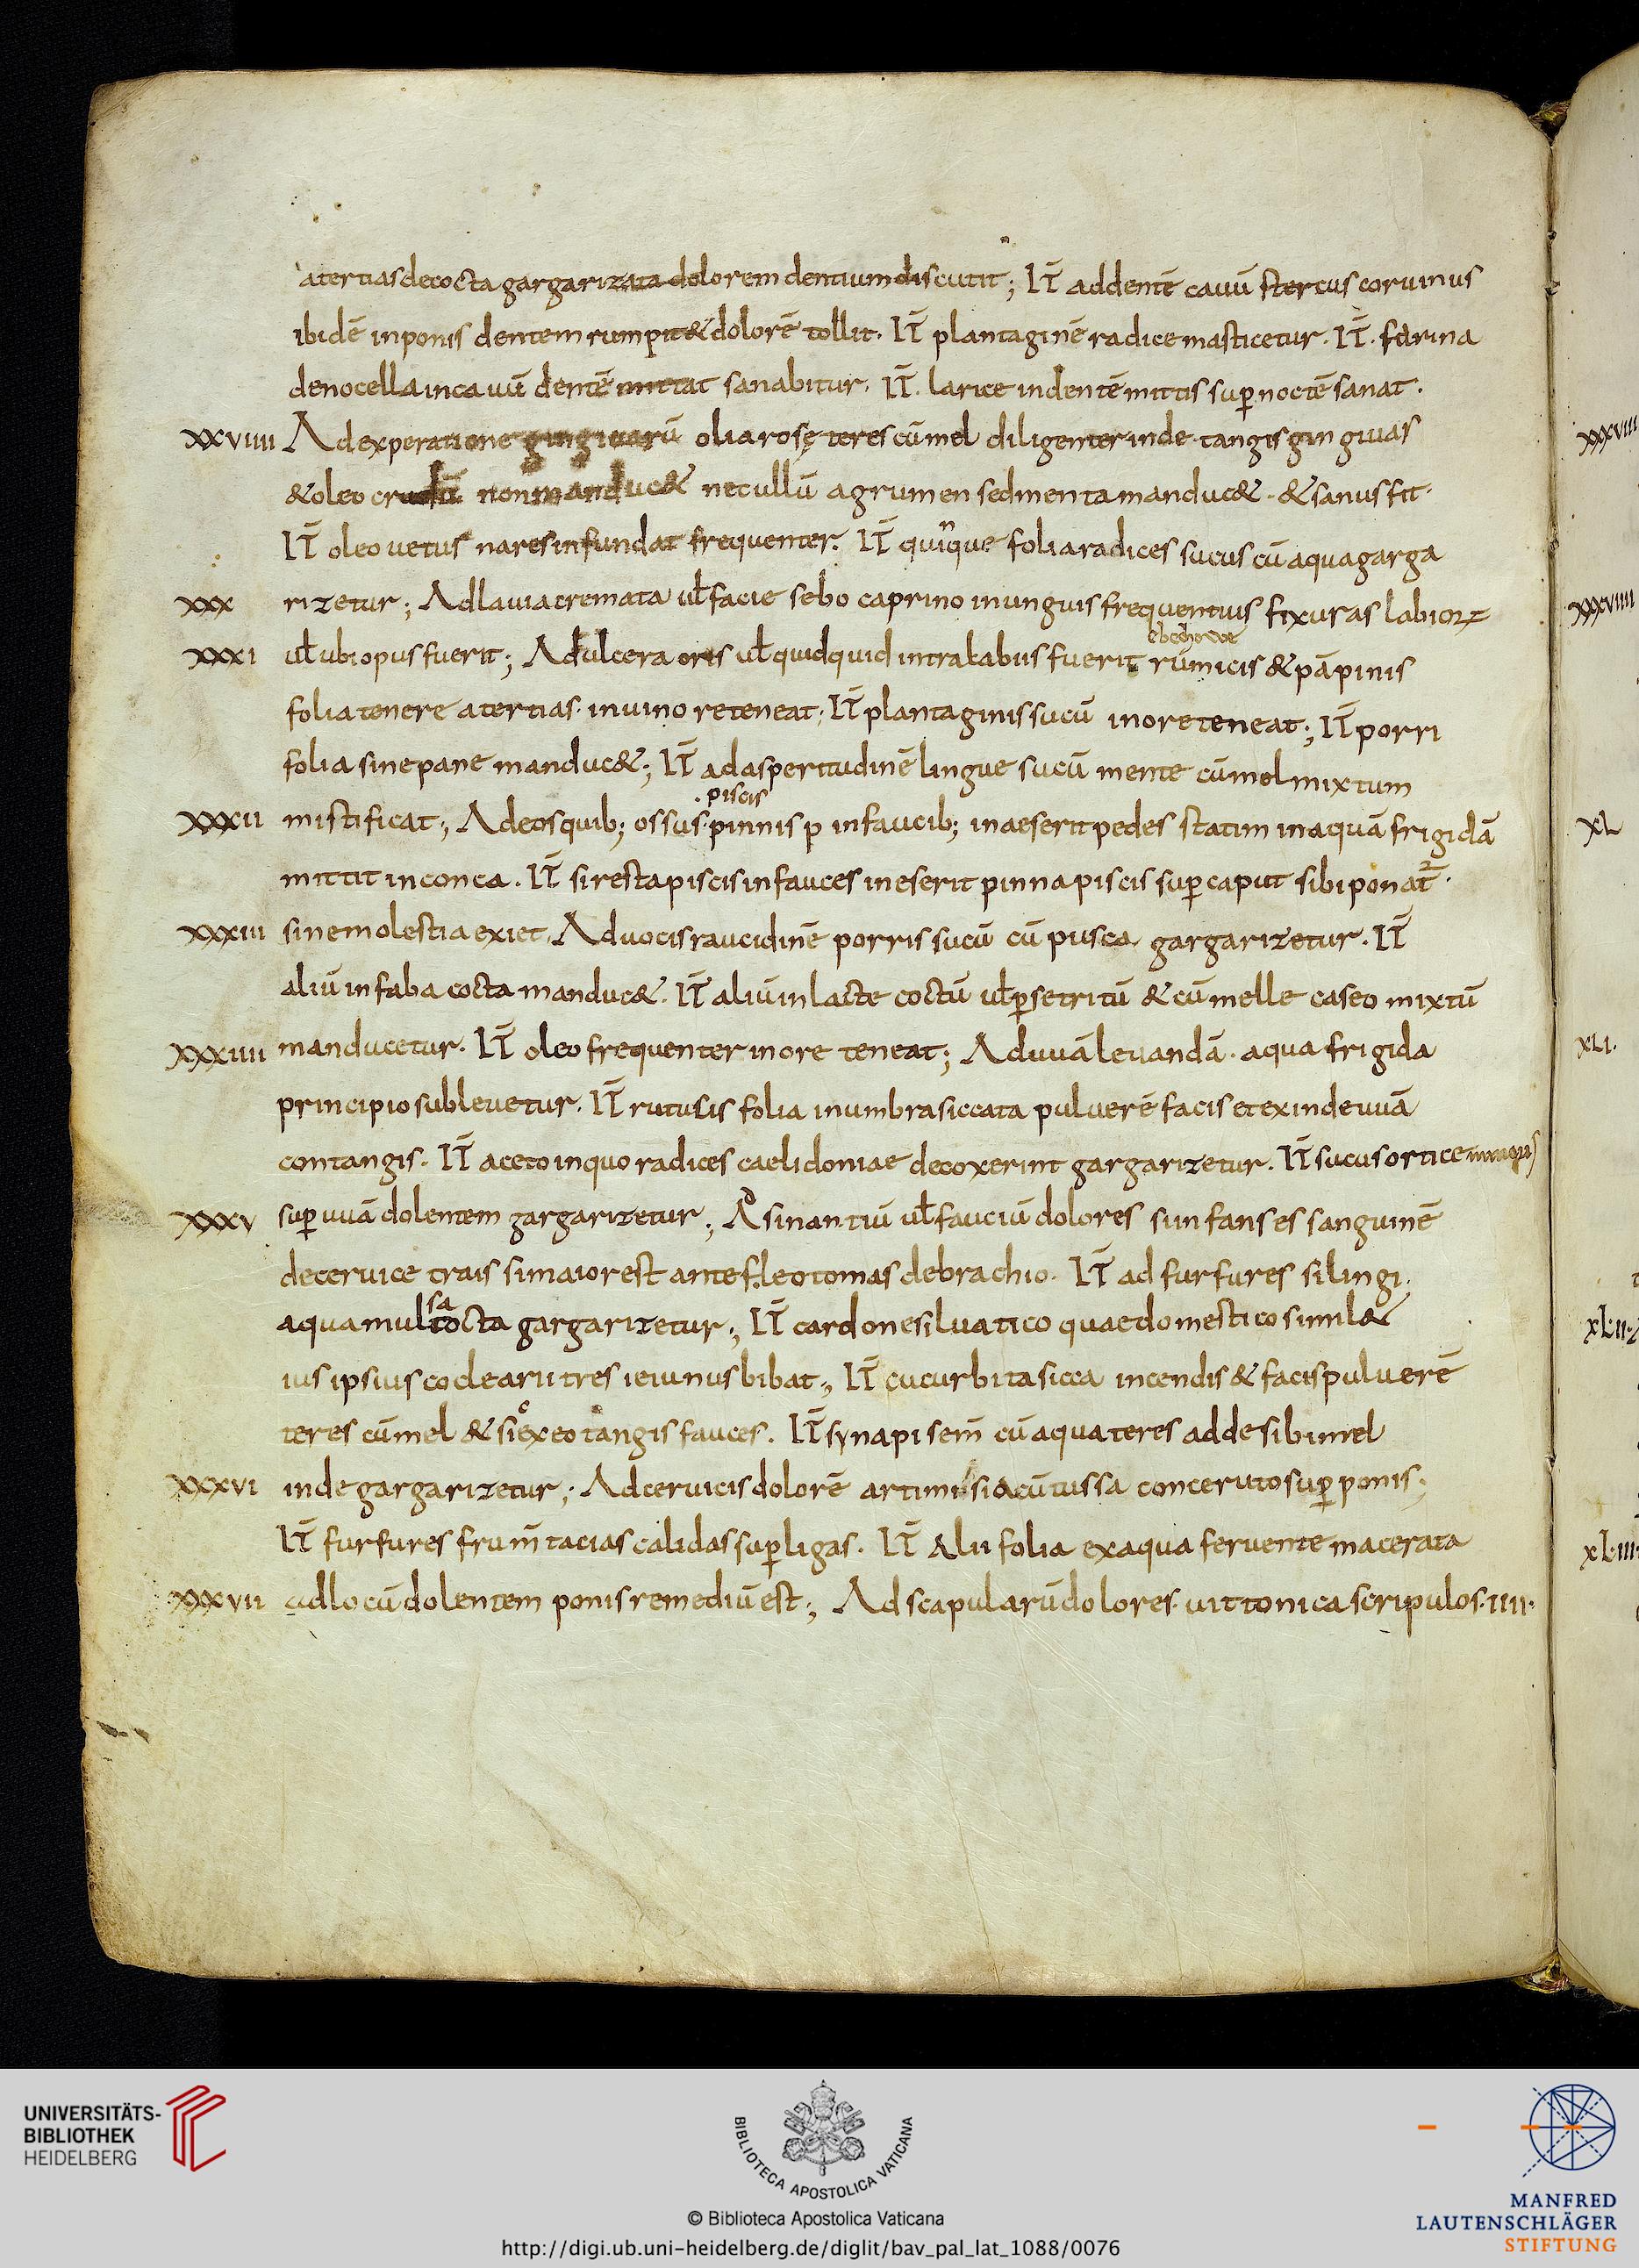 atertiasdecocta gargarizata dolorem dentium discutit; IT̄ addentē cauū stercus coruinus
ibidē inponis dentem rumpit & dolorē tollit. IT̄ plantaginē radice masticetur. IT̄. farina
denocella inca uū dentē mittat sanabitur. IT̄. larice indentē mittis suꝑ noctē sanat.
xxviiii Ad experatione gingiuarū olia rosę teres cū mel diligenter inde tangis gin giuas
& oleo crudū non manduc& nec ullū agrumen sed menta manduc&. & sanus fit.
IT̄ oleo uetus nares infundat frequenter. IT̄ quinque folia radices sucus cū aqua garga
xxx rizetur; Ad lauia cremata uł facie sebo caprino inunguis frequentius fixuras labioꝝ
xxxi uł ubi opus fuerit; Ad ulcera oris uł quidquid intra labiis fuerit rumicis & pāpinis
folia tenere atertias. inuino reteneat; IT̄ plantaginis sucū inore teneat; IT̄ porri
folia sine pane manduc&; IT̄ ad asperitudinē lingue sucū mente cū mel mixtum
piscis
xxxii mistificat; Ad eos quib; ossus. pinnis p infaucib; inaeserit pedes statim in aquā frigidā
mittit inconca. IT̄ siresta piscis infauces ineserit pinna piscis suꝑ caput sibi ponat̄.
xxxiii sine molestia exiet. Ad uocis raucidinē porris sucū cū pusca gargarizetur. IT̄
aliū in faba cocta manduc&. IT̄ aliū in lacte coctū uł ꝑ se tritū & cū melle caseo mixtū
xxxiiii manducetur. IT̄ oleo frequenter inore teneat; Ad uuā leuandā. aqua frigida
principio subleuetur. IT̄ rutulis folia inumbra siccata puluerē facis et exinde uuā
contangis. IT̄ aceto inquo radices caelidoniae decoxerint gargarizetur. IT̄ sucus ortice
xxxv suꝑ uuā dolentem gargarizetur; Ad sinantiū uł fauciū dolores si infans es sanguinē
deceruice trais si maior est ante fleotomas de brachio. IT̄ ad furfures silingi.
sa
aqua mul cocta gargarizetur; IT̄ cardone siluatico quae domestico simil&
ius ipsius coclearii tres ieiunus bibat; IT̄ cucurbita sicca incendis & facis puluerē
teres cū mel & sic exeo tangis fauces. IT̄ synapi sem̄ cū aqua teres adde sibi mel
xxxvi inde gargarizetur; Ad ceruicis dolorē artimisia cū tussa con ceruto suꝑ ponis;
IT̄ furfures frum̄tacias calidas suꝑ ligas. IT̄ Alii folia exaqua feruente macerata
xxxvii ad locū dolentem ponis remediū est; Ad scapularū dolores. uittonica scripulos. iiii.
xxxviii
xxxviiii
xl
xli.
UNIVERSITÄTS-
BIBLIOTHEK
HEIDELBERG
BIBLIOTECA APOSTOLICA VATICANA
© Biblioteca Apostolica Vaticana
http://digi.ub.uni-heidelberg.de/diglit/bav_pal_lat_1088/0076
MANFRED
LAUTENSCHLÄGER
STIFTUNG